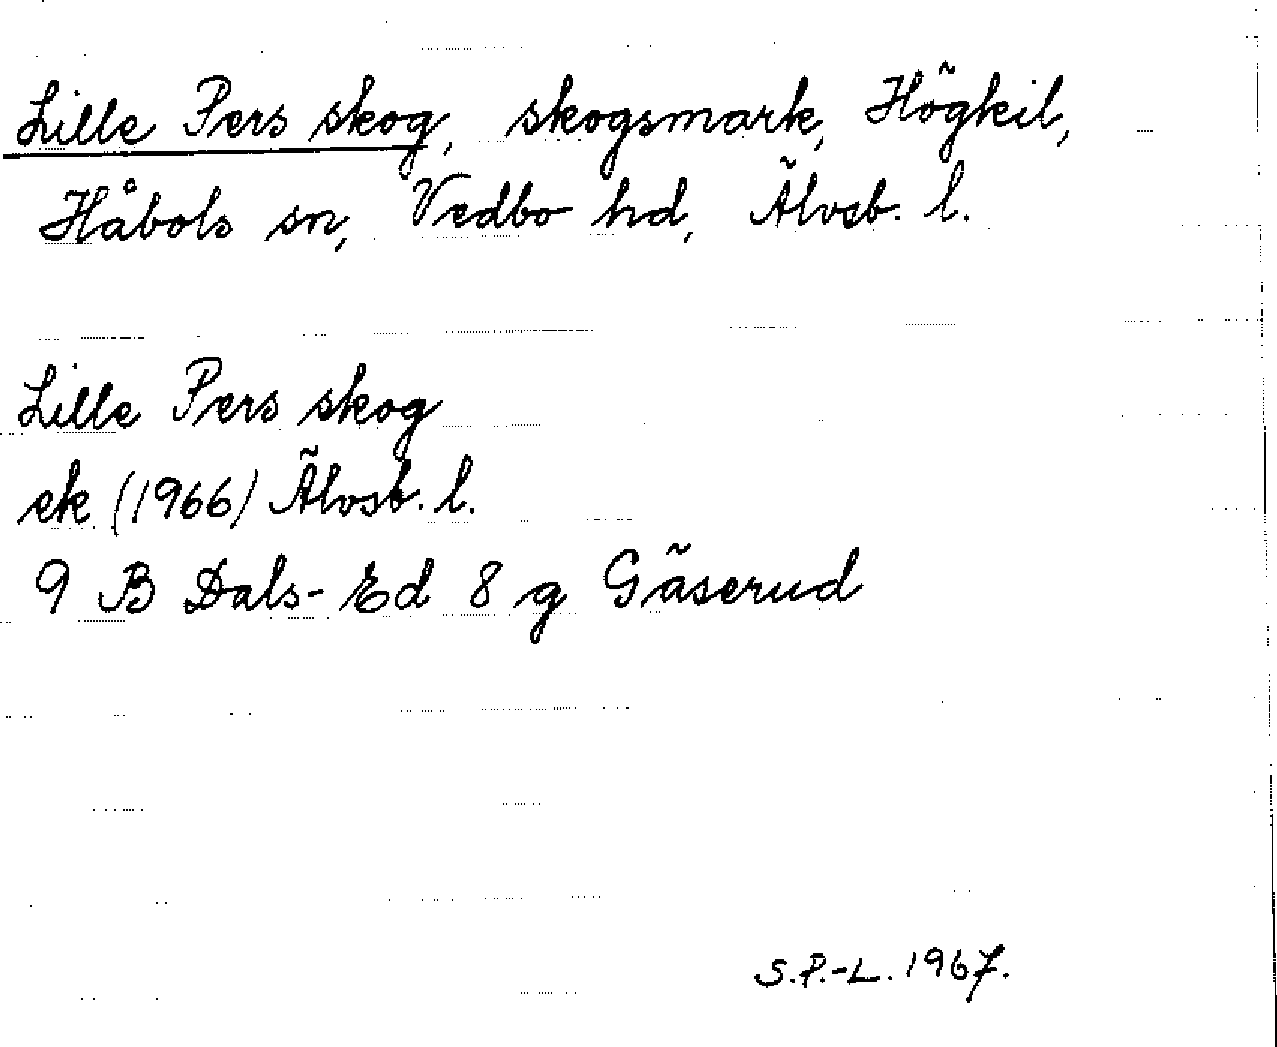 Lille Pers skog, skogsmark, Högkil,
Håbols sn, Vedbo hd, Älvsb. l.
Lille Pers skog
ek (1966) Älvsb. l.
9 B Dals-Ed 8 g Gäserud
S.P.-L. 1967.